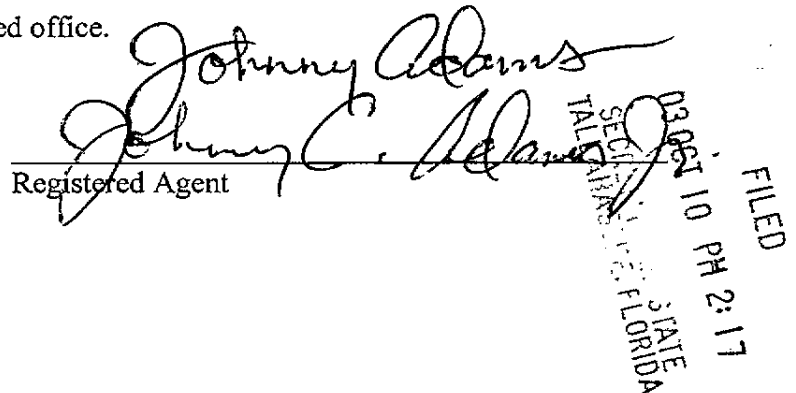 ed office.
Johnny Adams
Johnny C. Adams Jr
Registered Agent
FILED
03 OCT 10 PM 2:17
STATE
TALLAHASSEE, FLORIDA